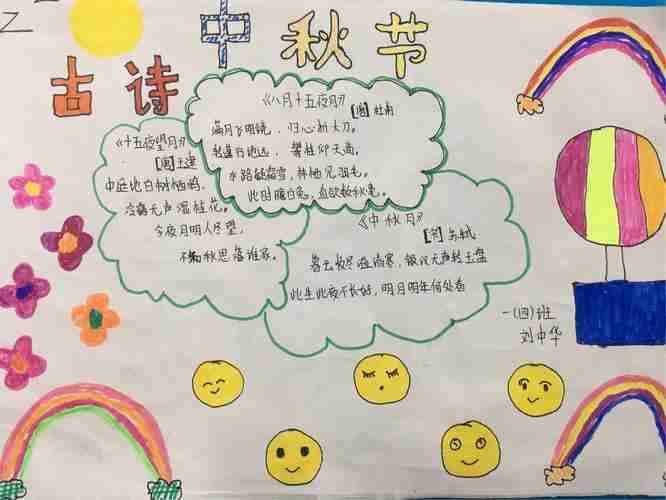 中秋节
古诗
《八月十五夜月》
[唐]杜甫
满月飞明镜，归心折大刀。
转蓬行地远，攀桂仰天高。
水路疑霜雪，林栖见羽毛。
此时瞻白兔，直欲数秋毫。
《十五夜望月》
[唐]王建
中庭地白树栖鸦，
冷露无声湿桂花。
今夜月明人尽望，
不知秋思落谁家。
《中秋月》
[宋]苏轼
暮云收尽溢清寒，银汉无声转玉盘
此生此夜不长好，明月明年何处看
一(四)班
刘中华